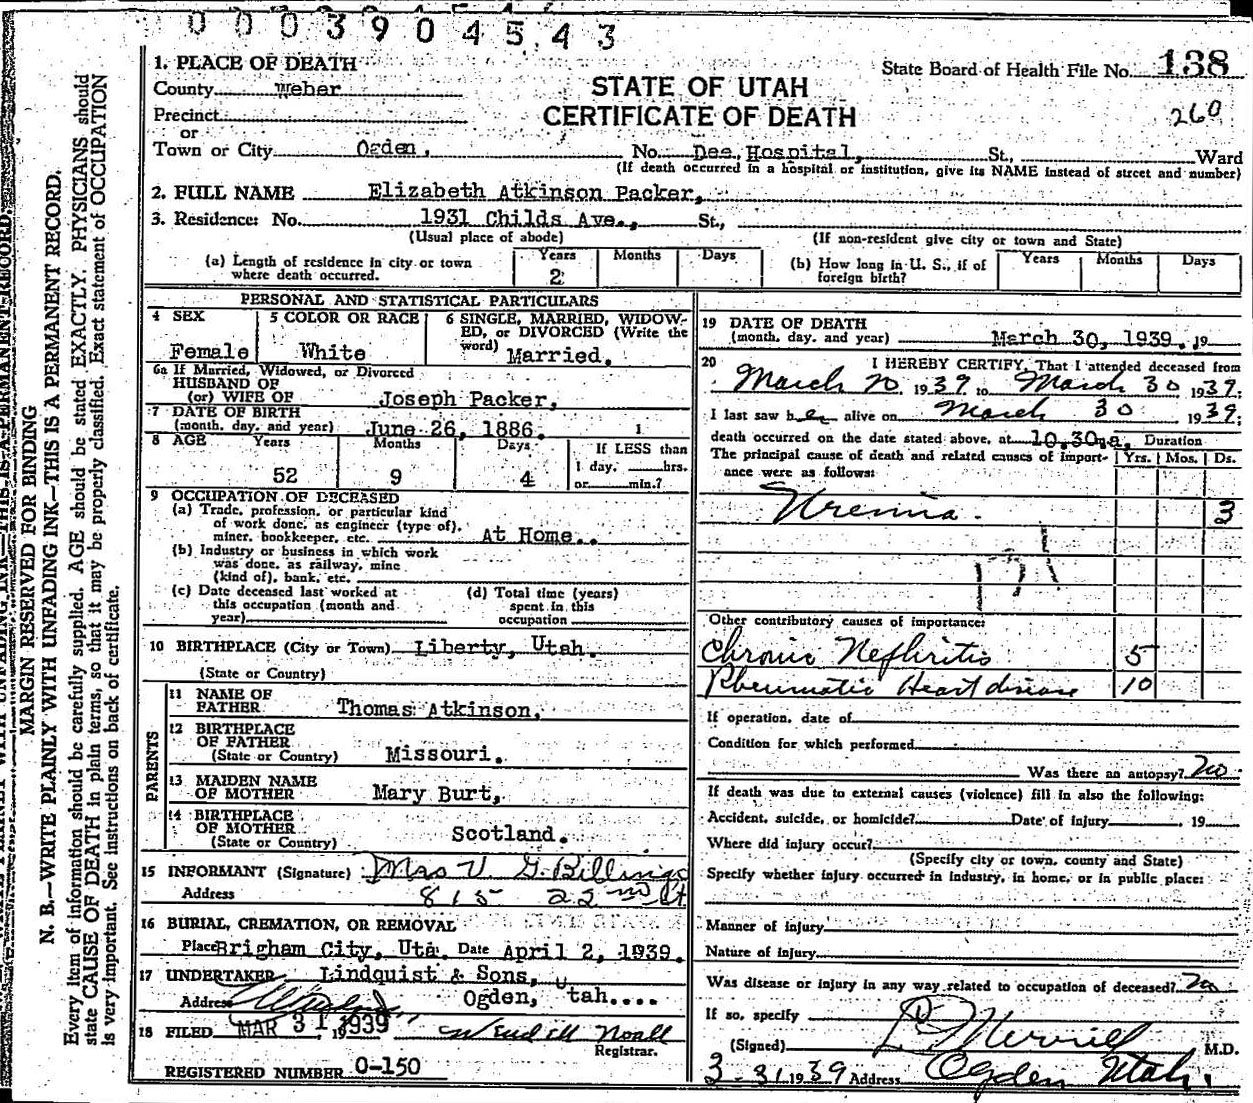 0 0 0 3 9 0 4 5 4 3
1. PLACE OF DEATH
State Board of Health File No. 138
County Weber
STATE OF UTAH
CERTIFICATE OF DEATH
260
Precinct
or
Town or City Ogden, No. Dee, Hospital, St., Ward
(If death occurred in a hospital or institution, give its NAME instead of street and number)
2. FULL NAME Elizabeth Atkinson Packer,
3. Residence: No. 1931 Childs Ave., St.,
(Usual place of abode) (If non-resident give city or town and State)
(a) Length of residence in city or town where death occurred. Years 2 Months Days
(b) How long in U. S., if of foreign birth? Years Months Days
PERSONAL AND STATISTICAL PARTICULARS
4 SEX Female
5 COLOR OR RACE White
6 SINGLE, MARRIED, WIDOW-
ED, or DIVORCED (Write the
word) Married.
6a If Married, Widowed, or Divorced
HUSBAND OF
(or) WIFE OF Joseph Packer,
7 DATE OF BIRTH
(month, day, and year) June 26, 1886.
8 AGE Years Months Days If LESS than
52 9 4 1 day, hrs.
or min.?
9 OCCUPATION OF DECEASED
(a) Trade, profession, or particular kind
of work done, as engineer (type of),
miner, bookkeeper, etc. At Home..
(b) Industry or business in which work
was done, as railway, mine
(kind of), bank, etc.
(c) Date deceased last worked at
this occupation (month and
year)
(d) Total time (years)
spent in this
occupation
10 BIRTHPLACE (City or Town) Liberty, Utah.
(State or Country)
PARENTS
11 NAME OF
FATHER Thomas Atkinson,
12 BIRTHPLACE
OF FATHER
(State or Country) Missouri.
13 MAIDEN NAME
OF MOTHER Mary Burt,
14 BIRTHPLACE
OF MOTHER
(State or Country) Scotland.
15 INFORMANT (Signature) Mrs V G. Billings
Address 815 22nd St
16 BURIAL, CREMATION, OR REMOVAL
Place Brigham City, Uta. Date April 2, 1939.
17 UNDERTAKER Lindquist & Sons,
Address Ogden, Utah....
18 FILED MAR 31 1939 Wendell Noall
Registrar.
REGISTERED NUMBER 0-150
19 DATE OF DEATH
(month, day, and year) March 30, 1939. 19
20 I HEREBY CERTIFY, That I attended deceased from
March 20 1939, to March 30 1939.
I last saw her alive on March 30 1939;
death occurred on the date stated above, at 10.30.a. Duration
The principal cause of death and related causes of import-
ance were as follows: Yrs. Mos. Ds.
Uremia. 3
131
Other contributory causes of importance:
Chronic Nephritis 5
Rheumatic Heart disease 10
If operation, date of
Condition for which performed
Was there an autopsy? No
If death was due to external causes (violence) fill in also the following:
Accident, suicide, or homicide? Date of injury 19
Where did injury occur?
(Specify city or town, county and State)
Specify whether injury occurred in industry, in home, or in public place:
Manner of injury
Nature of injury
Was disease or injury in any way related to occupation of deceased? No
If so, specify
(Signed) Merrill M.D.
3-31 1939 Address Ogden Utah.
MARGIN RESERVED FOR BINDING
N. B.—WRITE PLAINLY WITH UNFADING INK—THIS IS A PERMANENT RECORD.
Every item of information should be carefully supplied. AGE should be stated EXACTLY. PHYSICIANS should
state CAUSE OF DEATH in plain terms, so that it may be properly classified. Exact statement of OCCUPATION
is very important. See instructions on back of certificate.